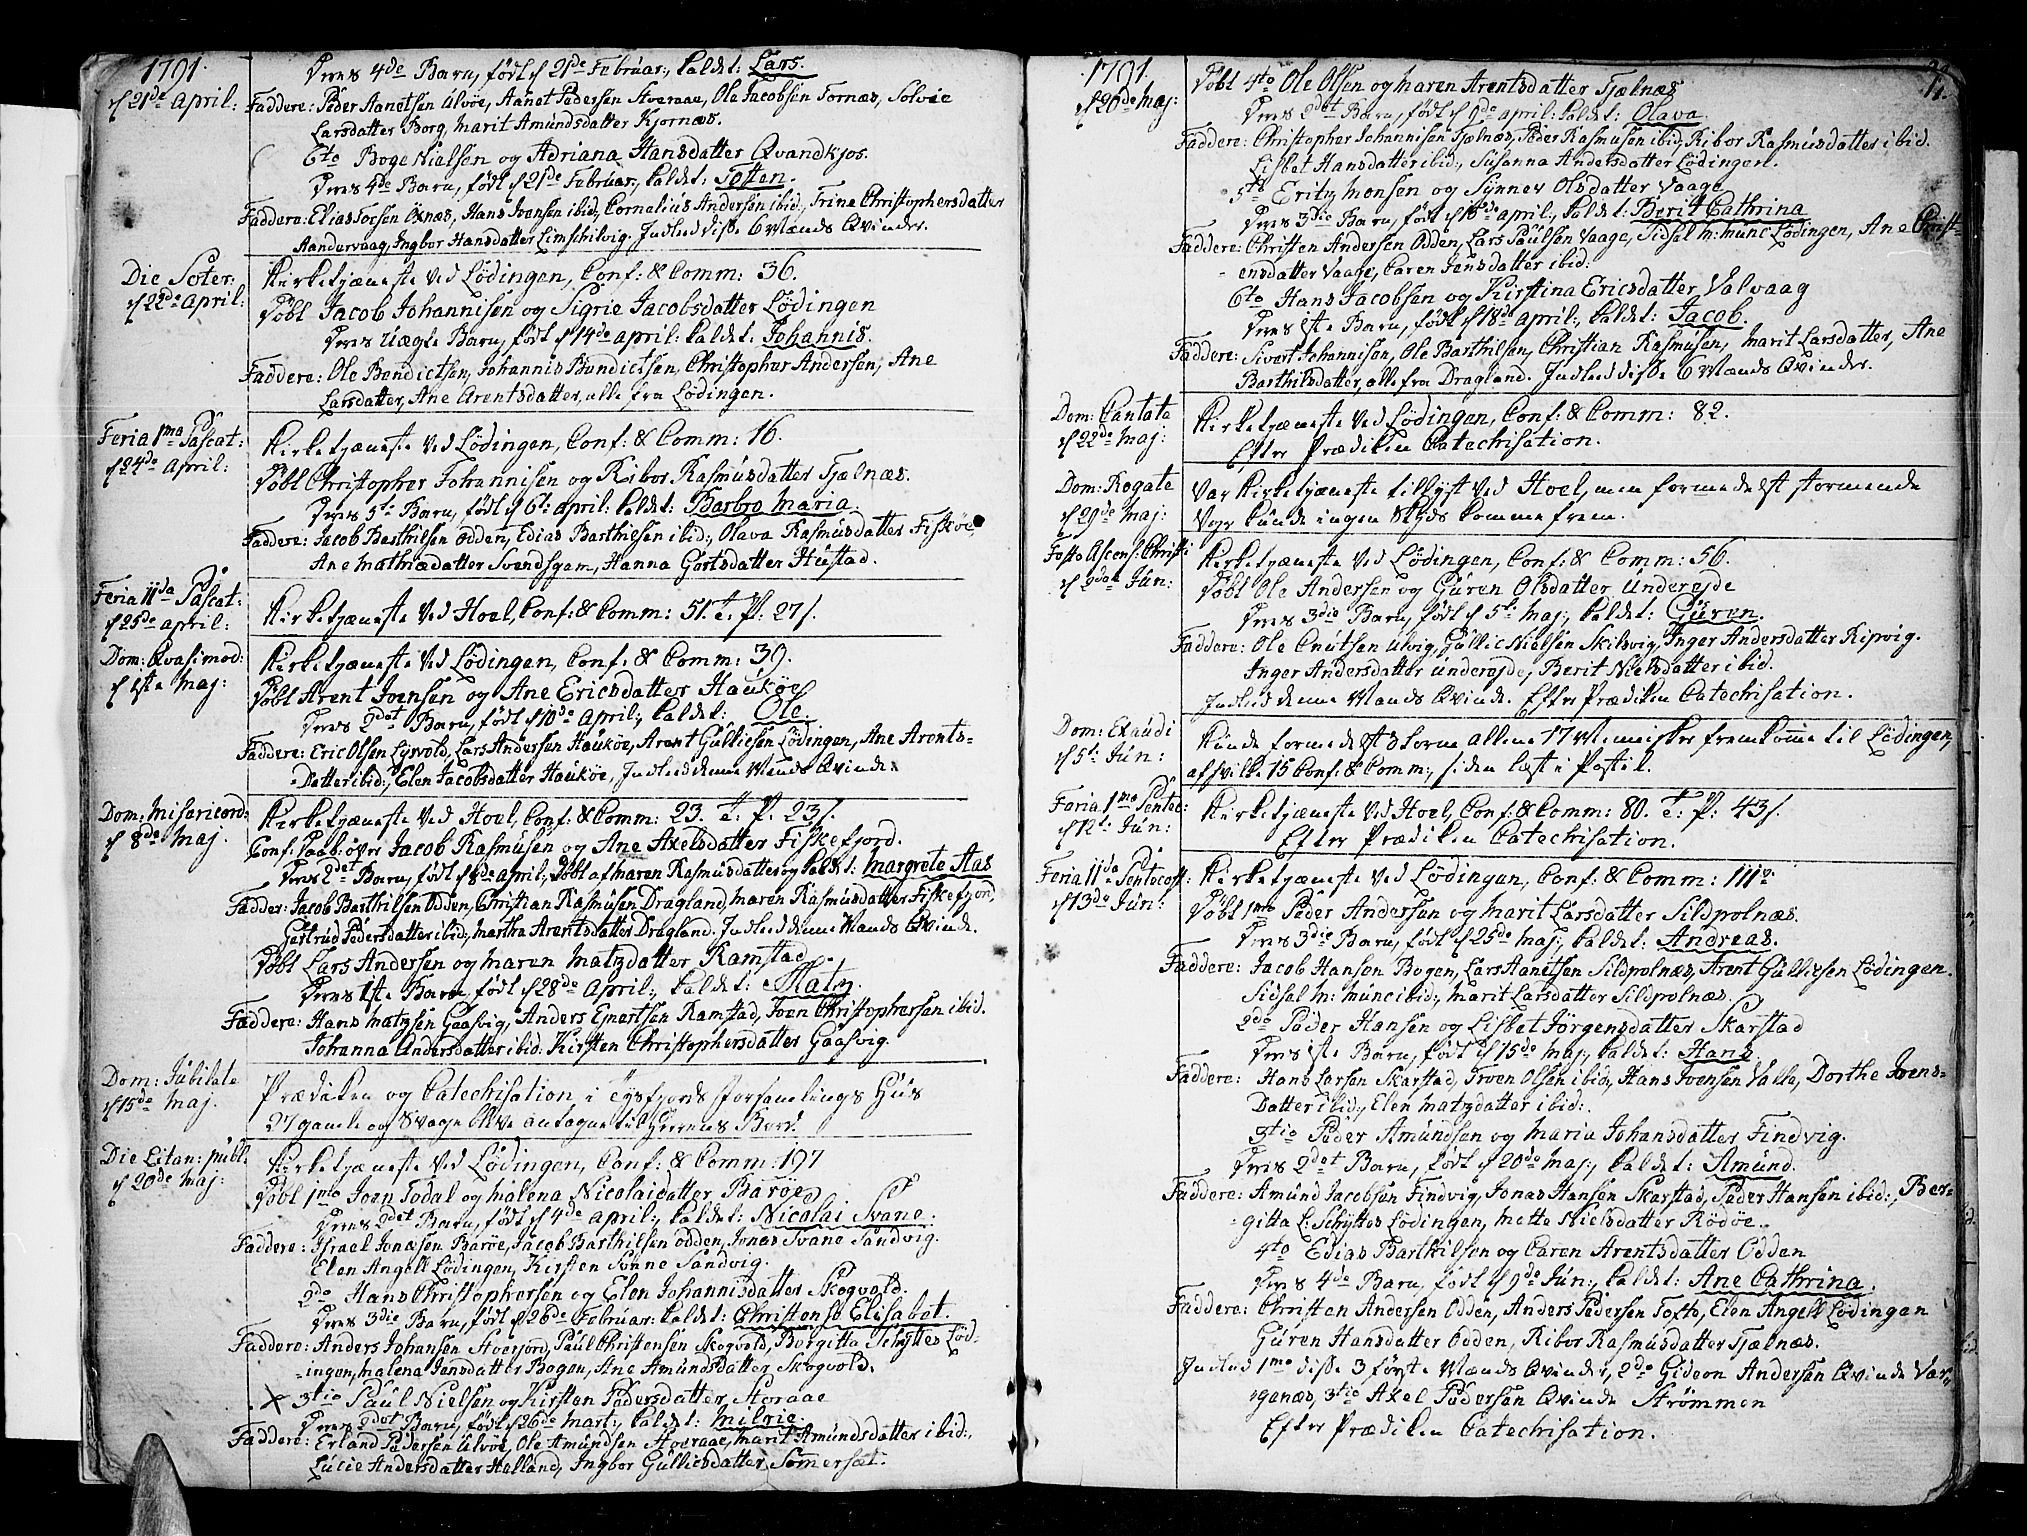 1791.
d 21de April:
Deres 4de Barn, født d 21de Februar:, kaldet: Lars.
Faddere: Peder Aanetsen Ulvöe, Aanet Pedersen Storaae, Ole Jacobsen Tornæs, Solvie
Larsdatter Borg, Marit Amundsdatter Kjornæs.
6to Boge Nielsen og Adriana Hansdatter Qvandkjos.
Deres 4de Barn, født d 21de Februar:, kaldet: Tosten.
Faddere: Elias Torsen Öxnæs, Hans Ivensen ibid:, Cornelius Andersen ibid:, Trine Christophersdatter
Aandervaag, Ingbor Hansdatter Limschilvig. Indled disse 6 Mænds Qvinder.
Die Soter:
d 22de April:
Kirketjæneste ved Lödingen, Conf: & Comm: 36.
Döbt Jacob Johannisen og Sigrie Jacobsdatter Lödingen
Deres Uægte Barn, født d 14de April: kaldet: Johannis.
Faddere: Ole Bendictsen, Johannis Bendictsen, Christopher Andersen, Ane
Larsdatter, Ane Arentsdatter, alle fra Lödingen.
Feria 1ma Pascat:
d 24de April:
Kirketjæneste ved Lödingen, Conf: & Comm: 16.
Döbt Christopher Johannisen og Ribor Rasmusdatter Tjælnæs.
Deres 5te Barn, født d 6te April: kaldet: Barbro Maria.
Faddere: Jacob Barthilsen Odden, Edias Barthilsen ibid:, Olava Rasmusdatter Fiskøe,
Ane Mathiædatter Svendsgam, Hanna Gortsdatter Hustad.
Feria IIda Pascat:
d 25de April:
Kirketjæneste ved Hoel, Conf: & Comm: 51. T. P. 27 s.
Dom: Qvasimod:
d 1ste Maj:
Kirketjæneste ved Lödingen, Conf: & Comm: 39.
Döbt Arent Ivensen og Ane Ericsdatter Haukøe
Deres 2det Barn, født d 10de April:, kaldet: Ole.
Faddere: Eric Olsen Lysvold, Lars Andersen Haukøe, Arent Gulliesen Lödingen, Ane Arents-
-datter ibid:, Elen Jacobsdatter Haukøe, Indled denne Mands Qvinde.
Dom: Misericord:
d 8de Maj.
Kirketjæneste ved Hoel, Conf: & Comm: 23. T. P. 23 s.
Conf: Daab: over Jacob Rasmusen og Ane Axelsdatter Fiskefjord.
Deres 2det Barn, født d 8de April:, døbt af Maren Rasmusdatter og kaldt: Margrete Aas
Fadder: Jacob Barthilsen Odden, Christian Rasmusen Dragland, Maren Rasmusdatter Fiskefjord,
Gertrud Pedersdatter ibid:, Martha Arentsdatter Dragland. Indled denne Mands Qvinde.
Döbt Lars Andersen og Maren Matzdatter Ramstad.
Deres 1ste Barn født d 28de April:, kaldet: Matz.
Faddere: Hans Matzsen Gaasvig, Anders Ejnertsen Ramstad, Iven Christophersen ibid.
Johanna Andersdatter ibid: Kirsten Christophersdatter Gaasvig.
Dom: Jubilate
d 15de Maj.
Prædiken og Catechisation i Tysfjords Forsamlings Huus
27 gamle og Svage bleve antagne til Herrens Bord.
Die Litan: publ.
d 20de Maj:
Kirketjæneste ved Lödingen, Conf: & Comm: 197
Döbt 1mo Joen Todal og Malena Nicolaidatter Barøe
Deres 2det Barn, født d 4de April:, kaldet: Nicolai Svane.
Faddere: Israel Jonæsen Barøe, Jacob Barthilsen Odden, Jonas Svane Sandvig.
Elen Angell Lödingen, Kirsten Svane Sandvig.
2do Hans Christophersen og Elen Johannisdatter Skogvold.
Deres 3die Barn, født d 26de Februar: kaldet: Christense Elisabet.
Faddere: Anders Johansen Storjord, Paul Christensen Skogvold, Borgitta Schyttes Löd-
-ingen, Malena Jensdatter Bogen, Ane Amundsdatter Skogvold.
x 3tio Paul Nielsen og Kirsten Pedersdatter Storaae
Deres 2det Barn, født d 26de Mart:, kaldet: Milrie.
Faddere: Erland Pedersen Ulvöe, Ole Amundsen Storaae, Marit Amundsdatter ibid:,
Lucie Andersdatter Helland, Ingbor Gulliesdatter Somerset.
1791.
d 20de Maj:
Döbt 4to Ole Olsen og Maren Arentsdatter Tjælnæs
Deres 2det Barn, født d 9de April: kaldet: Olava.
Faddere: Christopher Johannisen Tjælnæs, Peder Rasmusen ibid:, Ribor Rasmusdatter ibid.
Lisbet Hansdatter ibid:, Susanna Andersdatter Lödingen.
5to Eritz Monsen og Synnev Olsdatter Vaage
Deres 3die Barn, født d 16de April:, kaldet: Berit Cathrina.
Faddere: Christen Andersen Odden, Lars Paulsen Vaage, Sidsel M: Munc Lödingen, Ane Christ-
-ensdatter Vaage, Caren Jensdatter ibid:
6to Hans Jacobsen og Kirstina Ericsdatter Valvaag
Deres 1ste Barn, født d 18de April:, kaldet: Jacob.
Faddere: Sivert Johannisen, Ole Barthilsen, Christian Rasmusen, Marit Larsdatter, Ane
Barthilsdatter, alle fra Dragland. Indled disse 6 Mænds Qvinder.
Dom: Cantate
d 22de Maj:
Kirketjæneste ved Lödingen, Conf: & Comm: 82.
Efter Prædiken Catechisation.
Dom: Rogate
d 29de Maj:
Var Kirketjæneste tillyst ved Hoel, men formedelst stormende
Vejr kunde ingen Skyds komme frem.
Festo Ascens: Christi
d 2den Jun:
Kirketjæneste ved Lödingen, Conf: & Comm: 56.
Döbt Ole Andersen og Guren Olsdatter Underejde
Deres 3die Barn, født d 5te Maj:, kaldet: Guren.
Faddere: Ole Cnutsen Ulvig, Gullic Nielsen Skilvig, Inger Andersdatter Ripvig.
Inger Andersdatter Underejde, Berit Nielsdatter ibid.
Indled denne Mands Qvinde. Efter Prædiken Catechisation.
Dom: Exaudi
d 5te Jun:
Kunde formedelst Storm allene 17 Mennisker fremkomme til Lödingen,
af hvilke 15 Conf: & Comm:, siden læst i Postil.
Feria 1ma Pentec:
d 12te Jun:
Kirketjæneste ved Hoel, Conf: & Comm: 80. T: P: 43 s.
Efter Prædiken Catechisation.
Feria IIda Pentecost:
d 13de Jun:
Kirketjæneste ved Lödingen, Conf: & Comm: 111.
Döbt 1mo Peder Andersen og Marit Larsdatter Sildpolnæs.
Deres 3die Barn, født d 25de Maj:, kaldet: Andreas.
Faddere: Jacob Hansen Bogen, Lars Aanetsen Sildpolnæs, Arent Gulliesen Lödingen.
Sidsel M: Munc ibid:, Marit Larsdatter Sildpolnæs.
2do Peder Hansen og Lisbet Jörgensdatter Skarstad
Deres 1ste Barn, født d 15de Maj:, kaldet: Hans.
Faddere: Hans Larsen Skarstad, Troen Olsen ibid:, Hans Ivensen Valle, Dorthe Ivens-
Datter ibid:, Elen Matzdatter ibid:.
3tio Peder Amundsen og Maria Johansdatter Findvig.
Deres 2det Barn, født d 20de Maj:, kaldet: Amund.
Faddere: Amund Jacobsen Findvig, Jonas Hansen Skarstad, Peder Hansen ibid:, Ber-
-gitta L: Schyttes Lödingen, Mette Nielsdatter Rödøe.
4to Edias Barthilsen og Caren Arentsdatter Odden
Deres 4de Barn, født d 9de Jun:, kaldet: Ane Cathrina.
Faddere: Christen Andersen Odden, Anders Pedersen Tofte, Elen Angell Lödingen
Guren Hansdatter Odden, Ribor Rasmusdatter Tjælnæs.
Indled 1mo disse 3 første Mænds Qvinder, 2do Gideon Andersen Qvinde Var-
-genæs, 3tio Axel Pedersen Qvinde Strømmen
Efter Prædiken Catechisation.